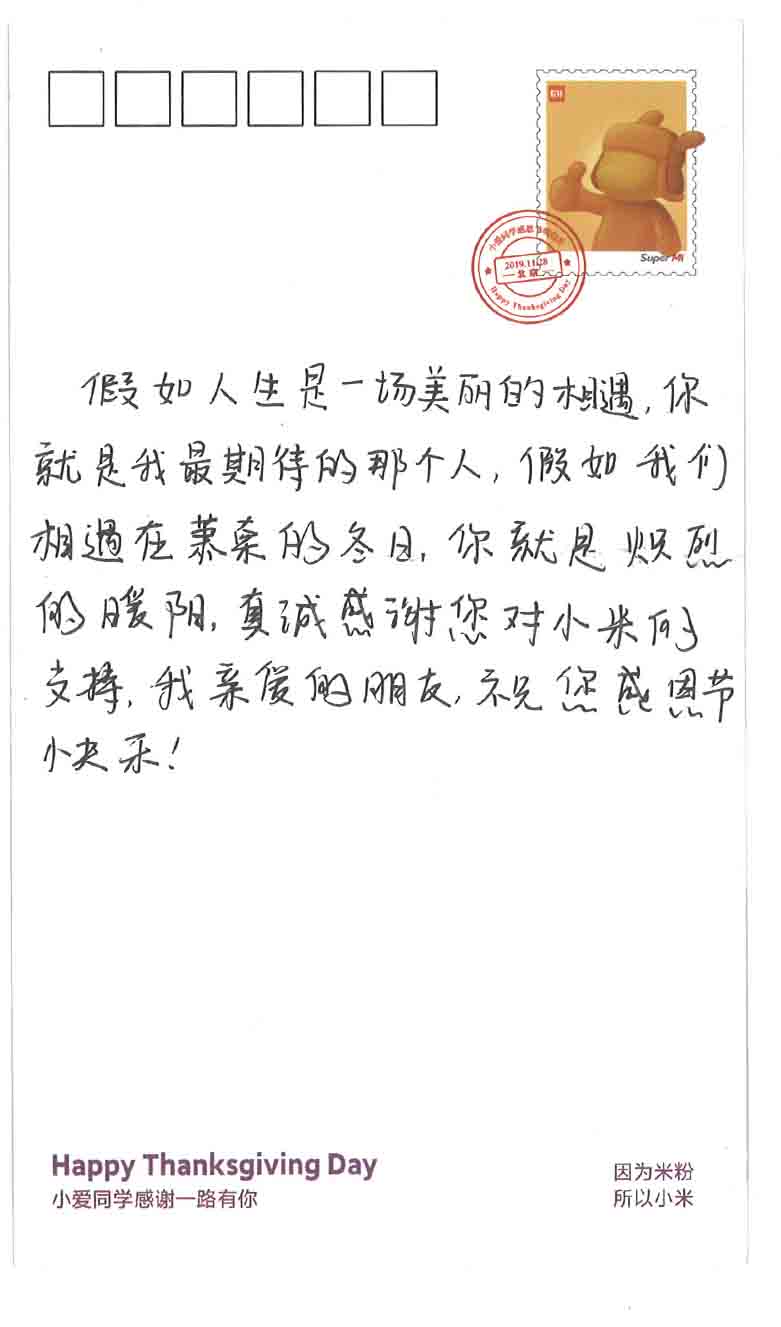 小爱同学感恩
2019.11.28
北京
Happy Thanksgiving Day
Super Mi
假如人生是一场美丽的相遇,你
就是我最期待的那个人,假如我们
相遇在萧索的冬日,你就是炽烈
的暖阳,真诚感谢您对小米的
支持,我亲爱的朋友,祝您感恩节
快乐!
Happy Thanksgiving Day
小爱同学感谢一路有你
因为米粉
所以小米